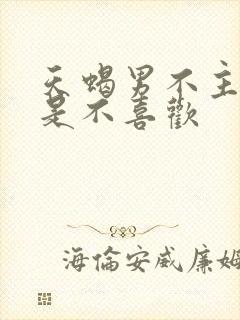 天蝎男不主
是不喜歡
海倫安威廉姆